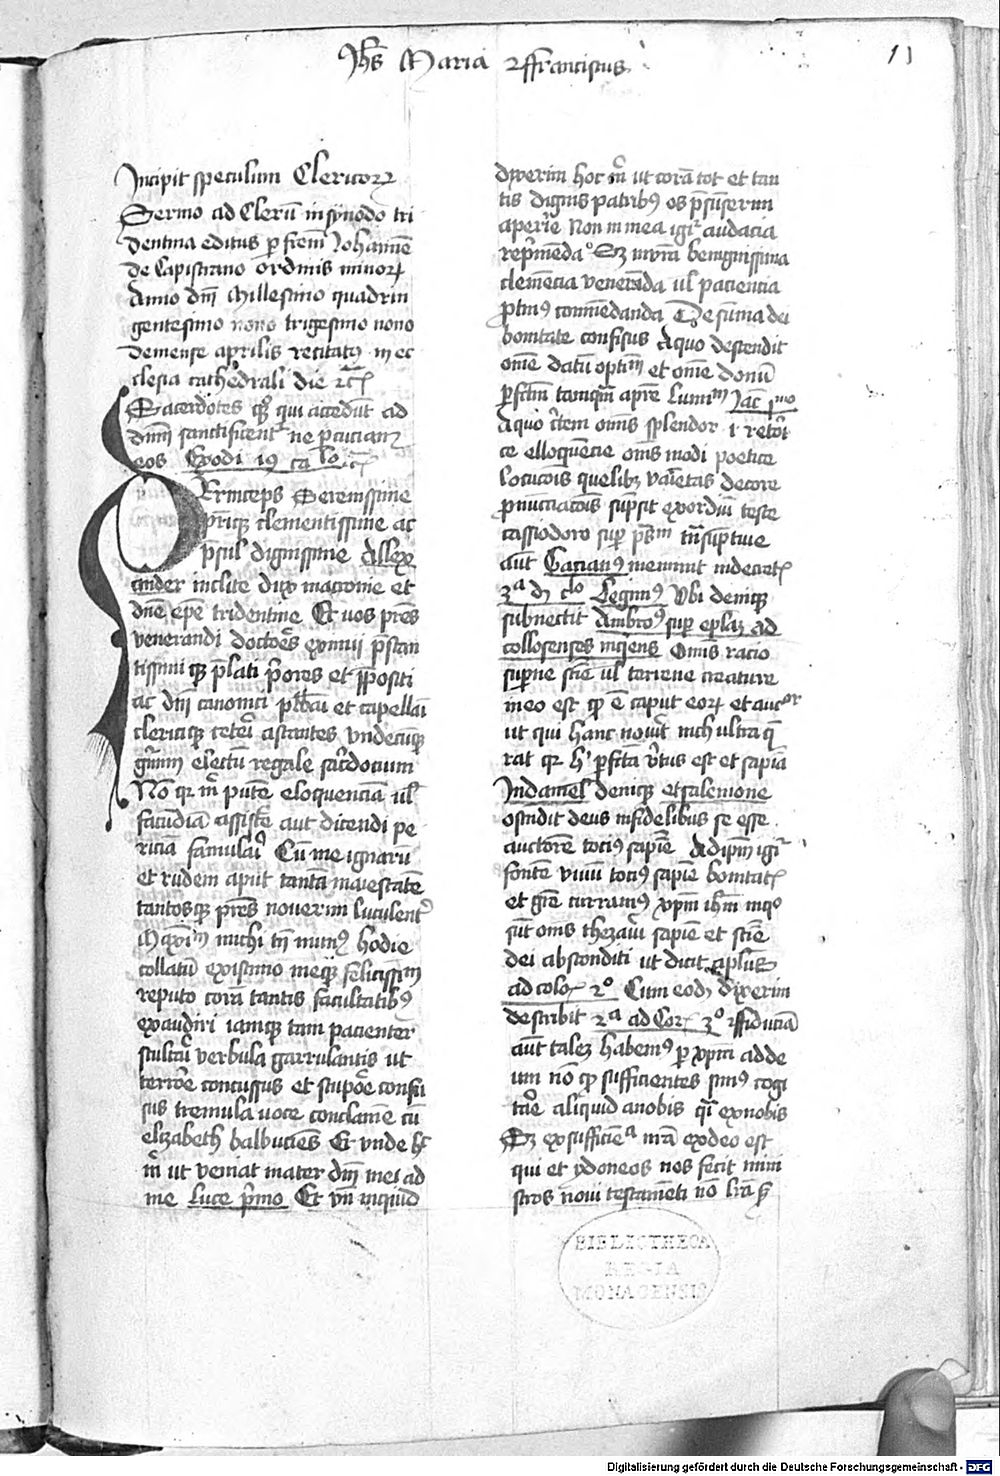 Jhs Maria et ffranciscus
11
Incipit speculum Clericorum
Sermo ad Clerū in synodo tri
dentina editus p frēm Johannē
de Capistrano ordinis minorum
Anno dnī Millesimo quadrin
gentesimo nono trigesimo nono
de mense aprilis recitatus in ec
clesia cathedrali die etc
Sacerdotes quoque qui accedūt ad
dnm̄ sanctificentur ne pcutiam
eos Exodi 19 ca
Princeps Serenissime
clementissime ac
psul dignissime Allex
ander inclite dux maconie et
dnē epē tridentine Et vos prēs
venerandi doctorēs eximii pstan
tissimi plati priores et ppositi
ac dnī canonici et capellani
clericique ceteri astantes undecūque
electū regale sacerdocium
Nō quia putem eloquenciā ul
facundiā assistere aut dicendi pe
riciā famulari Cū me ignarū
et rudem aput tantā maiestatē
tantosque prēs noverim luculenter
Maximū michi tn̄ munus hodie
collatū existimo meque felicissim
reputo corā tantis facultatibus
exaudiri iamque tam pacienter
verbula garrulantis ut
terrore concussus et stupore confu
sus tremula voce conclamē cū
elizabeth balbuciens Et unde hoc
m ut veniat mater dnī mei ad
me Luce prīmo Et inquid
dixerim hoc m ut corā tot et tan
tis dignis patribus os psūserim
aperire Non in mea igitur audacia
repmenda Sed vrā benignissima
clemēcia veneranda ul paciencia
protinus cōmēdanda De sūma dei
bonitate confisus A quo descendit
omne datū optimū et omne donū
pfctm tamquam apre Luminū Jac primo
A quo omnis splendor retori
ce elloquencie omnis modi poetice
locucionis quelibet varietas decore
pnuncciacionis supsit exordiū teste
cassiodoro super psalm
aut Gracianus meminit in decretis
Legimus Ubi denique
subnectit Ambrosius super eplam ad
collosenses inquiens Omnis racio
superne scie ul terrene creature
in eo est qui ē caput eorum et auctor
ut qui hanc novit nichil ultra que
rat quia hic pfcta virtus est et sapia
In daniel denique et salemone
ostendit deus infidelibus se esse
auctorē tocius sapie Ad ipm igitur
fontē vivū tocius sapie bonitatis
et gre curramus xpm ihm in quo
sūt omnis thezauri sapie et scie
dei absconditi ut dicit aplus
ad colo 2o Cum eodem dixerim
describit 2a ad Cor 3o ffiduciā
aut talem habemus p xpm ad de
um nō quod sufficientes simus cogi
tare aliquid a nobis quasi ex nobis
Sed ex sufficiēcia nrā ex deo est
qui et ydoneos nos fecit mini
stros novi testamēti nō lrā sed
BIBLIOTHECA
REGIA
MONACENSIS
Digitalisierung gefördert durch die Deutsche Forschungsgemeinschaft - DFG